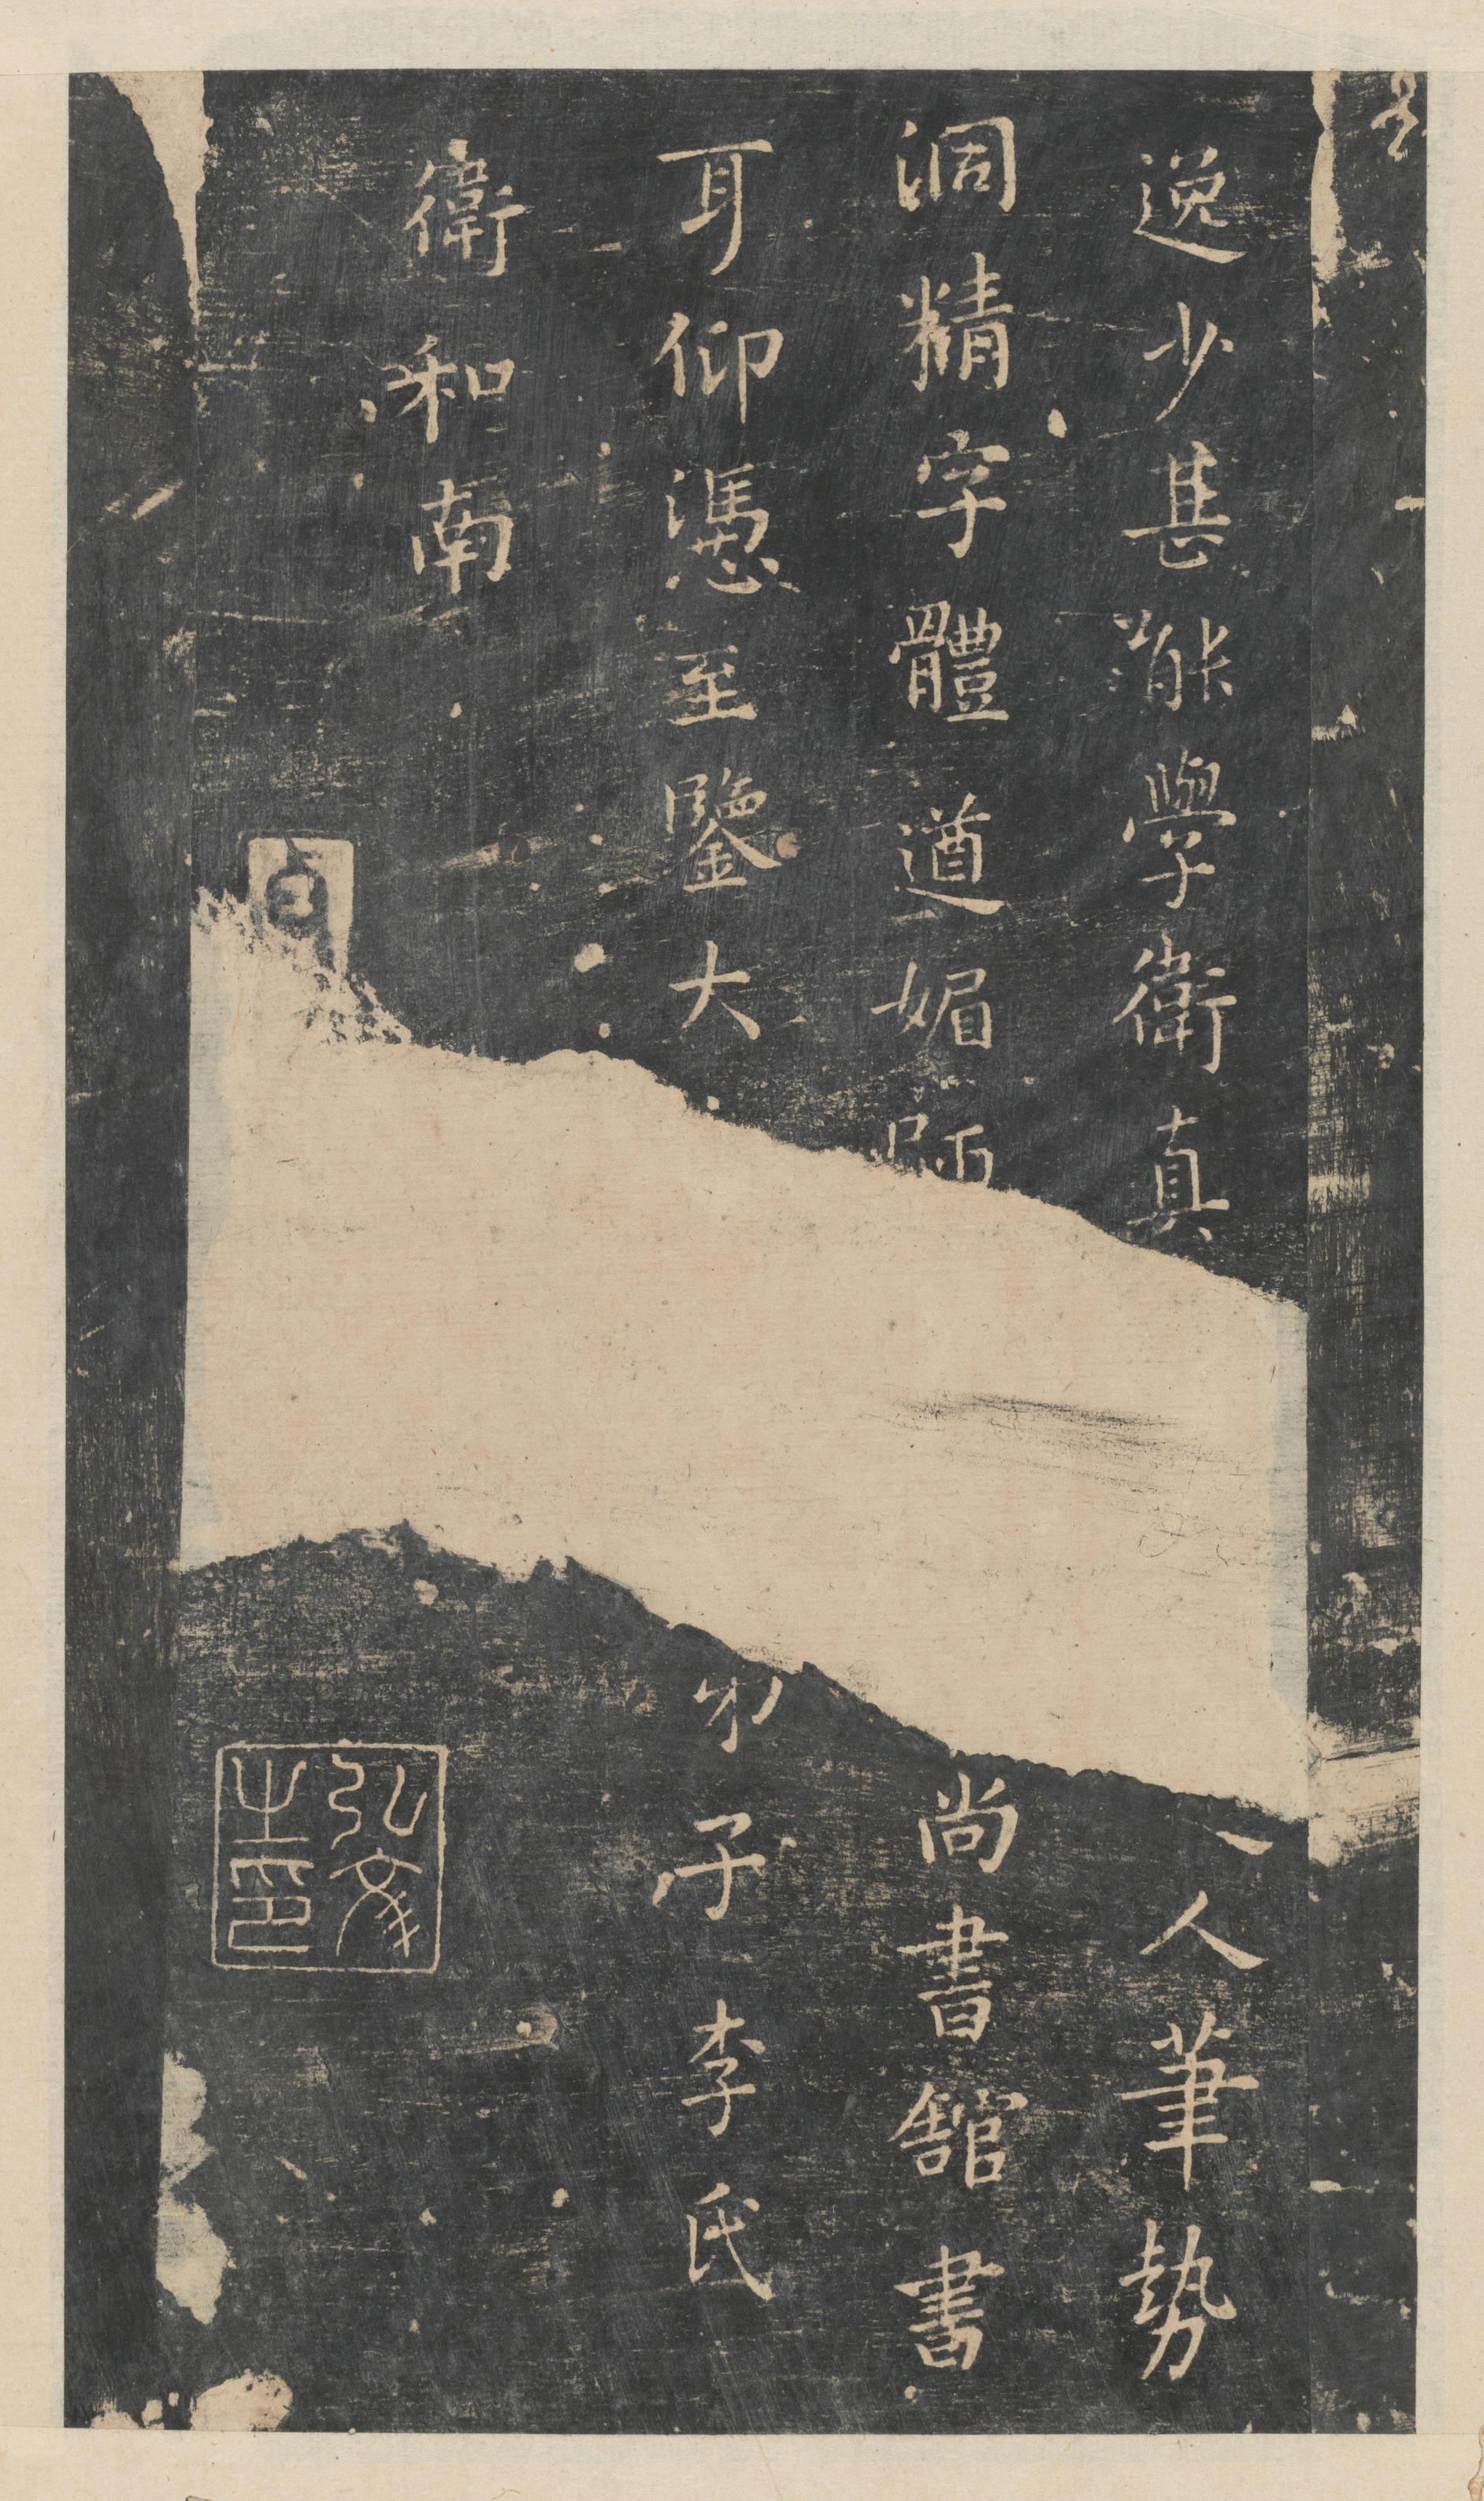 逸少甚能學衛真
一人筆勢
洞精字體遒媚
尚書館書
耳仰憑至鑒大
子李氏
衛和南
弘文之印